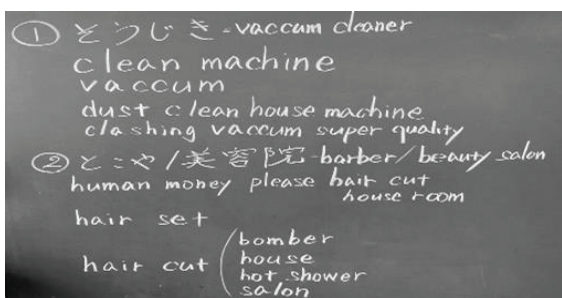 ① そうじき-vaccum cleaner
clean machine
vaccum
dust clean house machine
clashing vaccum super quality
② とこや/美容院-barber/beauty salon
human money please hair cut
house room
hair set
hair cut (bomber
house
hot shower
salon